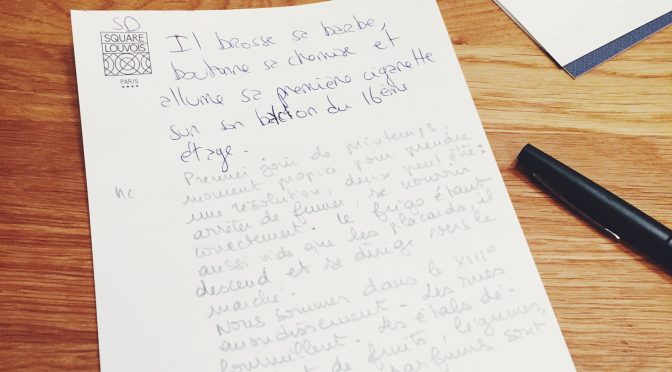 SD
SQUARE
LOUVOIS
PARIS
****
Il brosse sa barbe,
boutonne sa chemise et
allume sa première cigarette
sur son balcon du 16ème
étage.
Nc
Premier jour de printemps,
moment propice pour prendre
une résolution, deux peut être :
arrêter de fumer, se nourrir
correctement. Le frigo étant
aussi vide que les placards, il
descend et se dirige vers le
marché.
Nous sommes dans le XIII°
arrondissement. Les rues
fourmillent. Les étals dé-
de fruits, légumes,
parfums sont